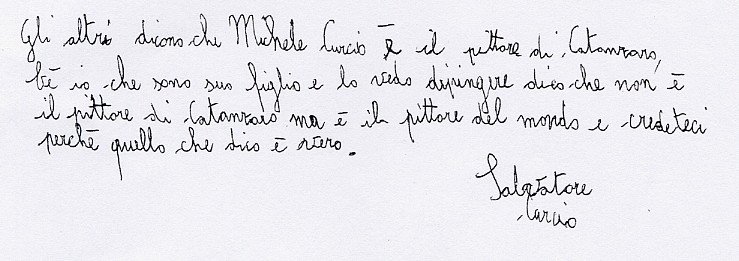 Gli altri dicono che Michele Curcio è il pittore di Catanzaro,
bè io che sono suo figlio e lo vedo dipingere dico che non è
il pittore di Catanzaro ma è il pittore del mondo e credeteci
perchè quello che dico è vero.
Salvatore
Curcio